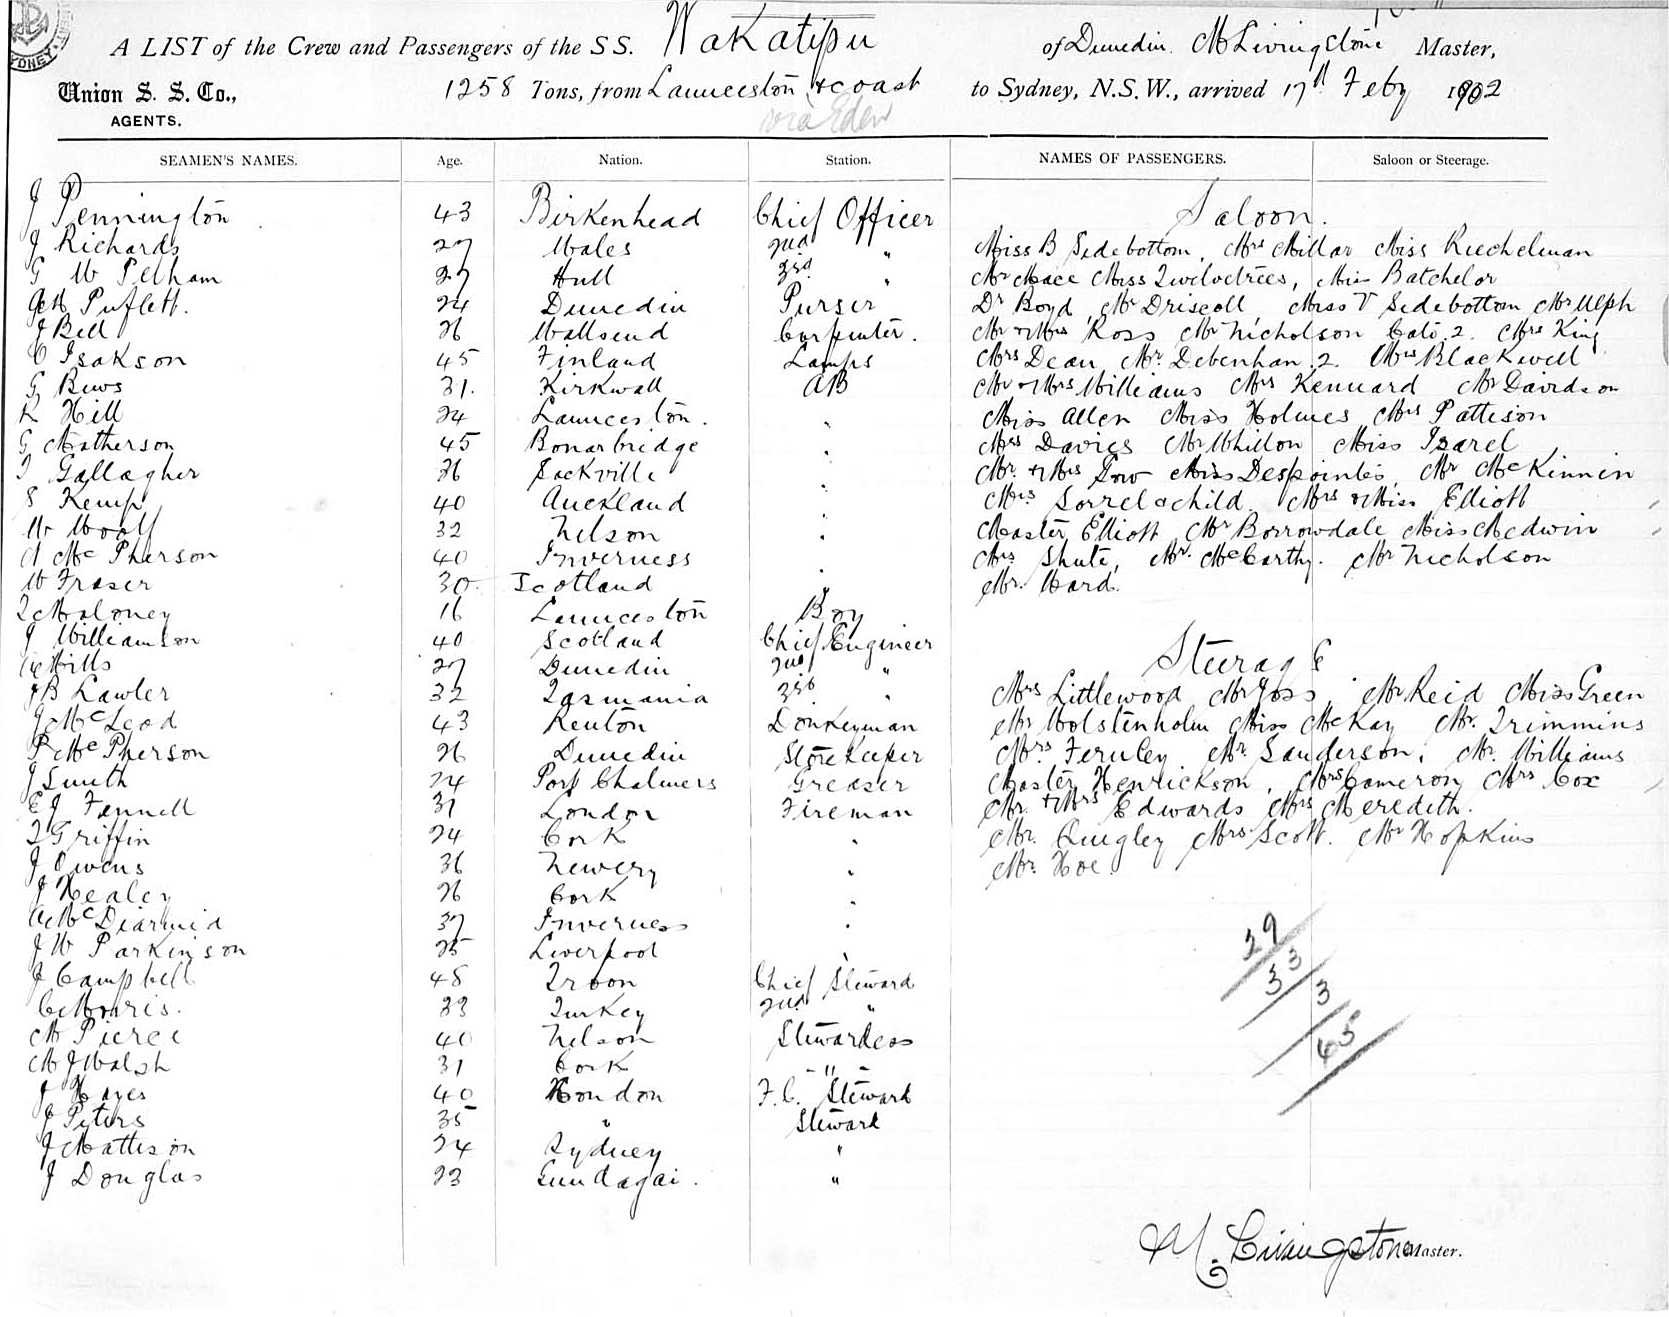 SYDNEY
A LIST of the Crew and Passengers of the S.S. Wakatipu of Dunedin M Livingstone Master,
Union S. S. Co., 1258 Tons, from Launceston & coast to Sydney, N.S.W., arrived 17th Feby 1902
AGENTS. via Eden
SEAMEN'S NAMES. Age. Nation. Station. NAMES OF PASSENGERS. Saloon or Steerage.
J Pennington 43 Birkenhead Chief Officer Saloon.
J Richards 27 Wales 2nd " Miss B Sidebottom, Mrs Millar Miss Riechelman
G W Pelham 27 Hull 3rd " Mr Mace Miss Twelvetrees, Miss Batchelor
Puflett. 24 Dunedin Purser Dr Boyd, Mr Driscoll, Miss V Sidebottom Mr Ulph
J Bell 26 Wallsend Carpenter. Mr & Mrs Ross Mr Nicholson 2. Mrs King
C Isakson 45 Finland Lamps Mrs Dean, Mr Debenham 2. Mrs Blackwell
G Bews 31. Kirkwall AB Mr & Mrs Williams Mrs Kennard Mr Davidson
R Hill 24 Launceston. " Miss Allen Miss Holmes Mrs Pattison
G Matherson 45 Bonarbridge " Mrs Davies Mr Whillon Miss Izarel
T Gallagher 26 Sackville " Mr. & Mrs Gow Miss Despointes, Mr McKinnin
S Kemp 40 Auckland " Mrs Sorrel & child, Mrs & Miss Elliott
W Woolf 32 Nelson " Master Elliott Mr Borrowdale Miss Medwin
A McPherson 40 Inverness " Mrs Shute, Mr. McCarthy. Mr Nicholson
W Fraser 30 Scotland " Mr. Ward.
T Maloney 16 Launceston Boy
J Williamson 40 Scotland Chief Engineer Steerage
Mills 27 Dunedin 2nd "
J B Lawler 32 Tasmania 3rd " Mrs Littlewood Mr Joss Mr Reid Miss Green
J McLeod 43 Renton Donkeyman Mr Wolstenholm Miss McKay Mr. Trimmins
P McPherson 26 Dunedin Storekeeper Mrs Fernley Mr Sanderson, Mr. Williams
J Smith 24 Port Chalmers Greaser Master Henrickson, Mrs Cameron Mrs Cox
E J Fennell 31 London Fireman Mr. & Mrs Edwards Mrs Meredith.
T Griffin 24 Cork " Mr. Quigley Mrs Scott. Mr Hopkins
J Owens 36 Newery " Mr. Hoe.
J Healey 26 Cork "
A McDiarmid 37 Inverness " 29
J W Parkinson 25 Liverpool " 33
J Campbell 48 Troon Chief Steward 3
C Morris. 33 Turkey 2nd " 65
M Pierce 40 Nelson Stewardess
M J Walsh 31 Cork "
J Hayes 40 London F.C. Steward
J Peters 35 " Steward
J Mattison 24 Sydney "
J Douglas 23 Gundagai. "
M. Livingstone Master.